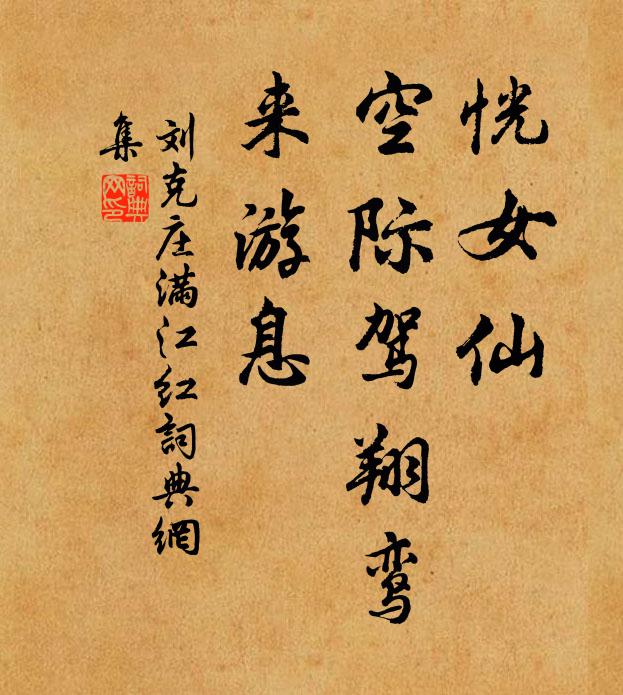 恍女仙
空际驾翔鸾
来游息
刘克庄满江红詞典網
集
詞典
网印